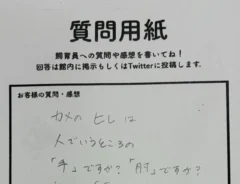 質問用紙
飼育員への質問や感想を書いてね！
回答は館内に掲示もしくはTwitterに投稿します。
お客様の質問・感想
カメのヒレは
人でいうところの
「手」ですか？「肘」ですか？